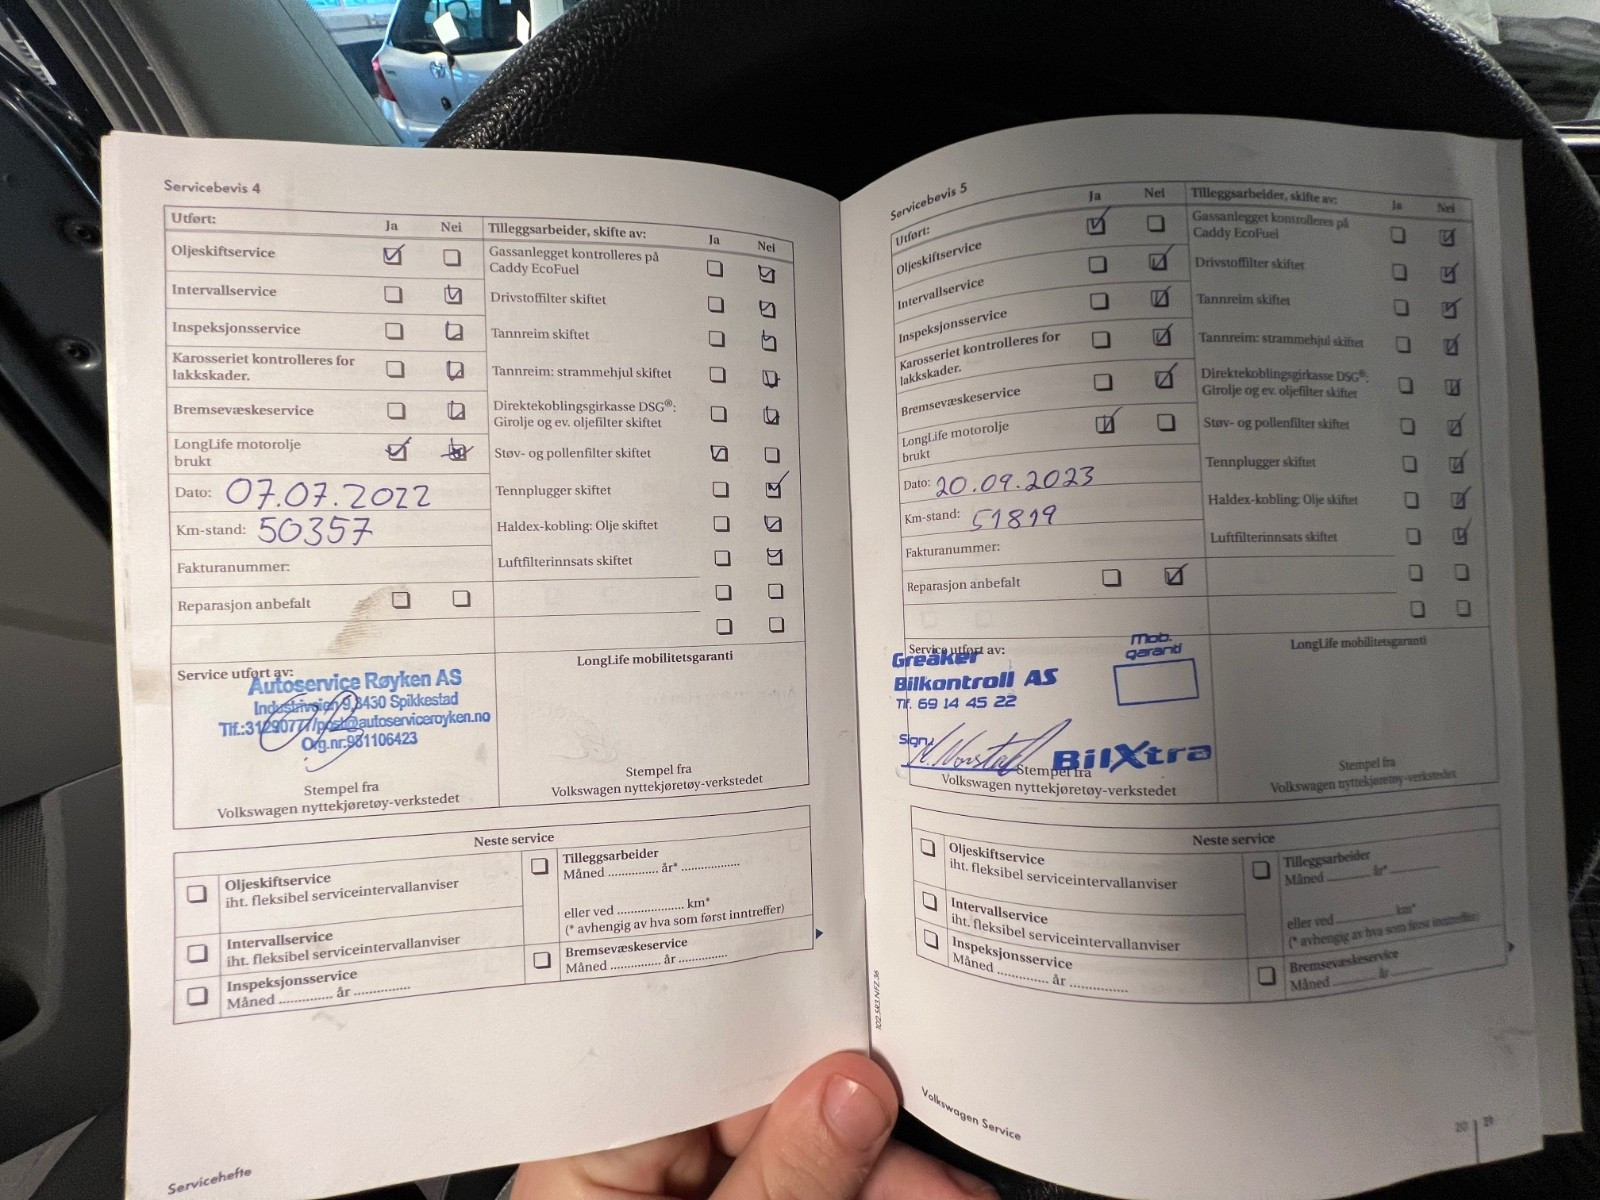 Servicebevis 4
Utført: Ja Nei
Oljeskiftservice
Intervallservice
Inspeksjonsservice
Karosseriet kontrolleres for
lakkskader.
Bremsevæskeservice
LongLife motorolje
brukt
Dato: 07.07.2022
Km-stand: 50357
Fakturanummer:
Reparasjon anbefalt
Tilleggsarbeider, skifte av: Ja Nei
Gassanlegget kontrolleres på
Caddy EcoFuel
Drivstoffilter skiftet
Tannreim skiftet
Tannreim: strammehjul skiftet
Direktekoblingsgirkasse DSG®:
Girolje og ev. oljefilter skiftet
Støv- og pollenfilter skiftet
Tennplugger skiftet
Haldex-kobling: Olje skiftet
Luftfilterinnsats skiftet
Service utført av:
Autoservice Røyken AS
Industriveien 9, 3430 Spikkestad
Tlf.:31290777/post@autoserviceroyken.no
Org.nr:981106423
Stempel fra
Volkswagen nyttekjøretøy-verkstedet
LongLife mobilitetsgaranti
Stempel fra
Volkswagen nyttekjøretøy-verkstedet
Neste service
Oljeskiftservice
iht. fleksibel serviceintervallanviser
Intervallservice
iht. fleksibel serviceintervallanviser
Inspeksjonsservice
Måned .............. år ..............
Tilleggsarbeider
Måned .............. år* ...............
eller ved .................... km*
(* avhengig av hva som først inntreffer)
Bremsevæskeservice
Måned .............. år ..............
Servicehefte
Servicebevis 5
Utført: Ja Nei
Oljeskiftservice
Intervallservice
Inspeksjonsservice
Karosseriet kontrolleres for
lakkskader.
Bremsevæskeservice
LongLife motorolje
brukt
Dato: 20.09.2023
Km-stand: 51819
Fakturanummer:
Reparasjon anbefalt
Tilleggsarbeider, skifte av: Ja Nei
Gassanlegget kontrolleres på
Caddy EcoFuel
Drivstoffilter skiftet
Tannreim skiftet
Tannreim: strammehjul skiftet
Direktekoblingsgirkasse DSG®:
Girolje og ev. oljefilter skiftet
Støv- og pollenfilter skiftet
Tennplugger skiftet
Haldex-kobling: Olje skiftet
Luftfilterinnsats skiftet
Service utført av:
Greåker
Bilkontroll AS
Tlf. 69 14 45 22
Mob.
garanti
Sign.
BilXtra
Stempel fra
Volkswagen nyttekjøretøy-verkstedet
LongLife mobilitetsgaranti
Stempel fra
Volkswagen nyttekjøretøy-verkstedet
Neste service
Oljeskiftservice
iht. fleksibel serviceintervallanviser
Intervallservice
iht. fleksibel serviceintervallanviser
Inspeksjonsservice
Måned .............. år ..............
Tilleggsarbeider
Måned .............. år* ..............
eller ved .................... km*
(* avhengig av hva som først inntreffer)
Bremsevæskeservice
Måned .............. år ..............
Volkswagen Service